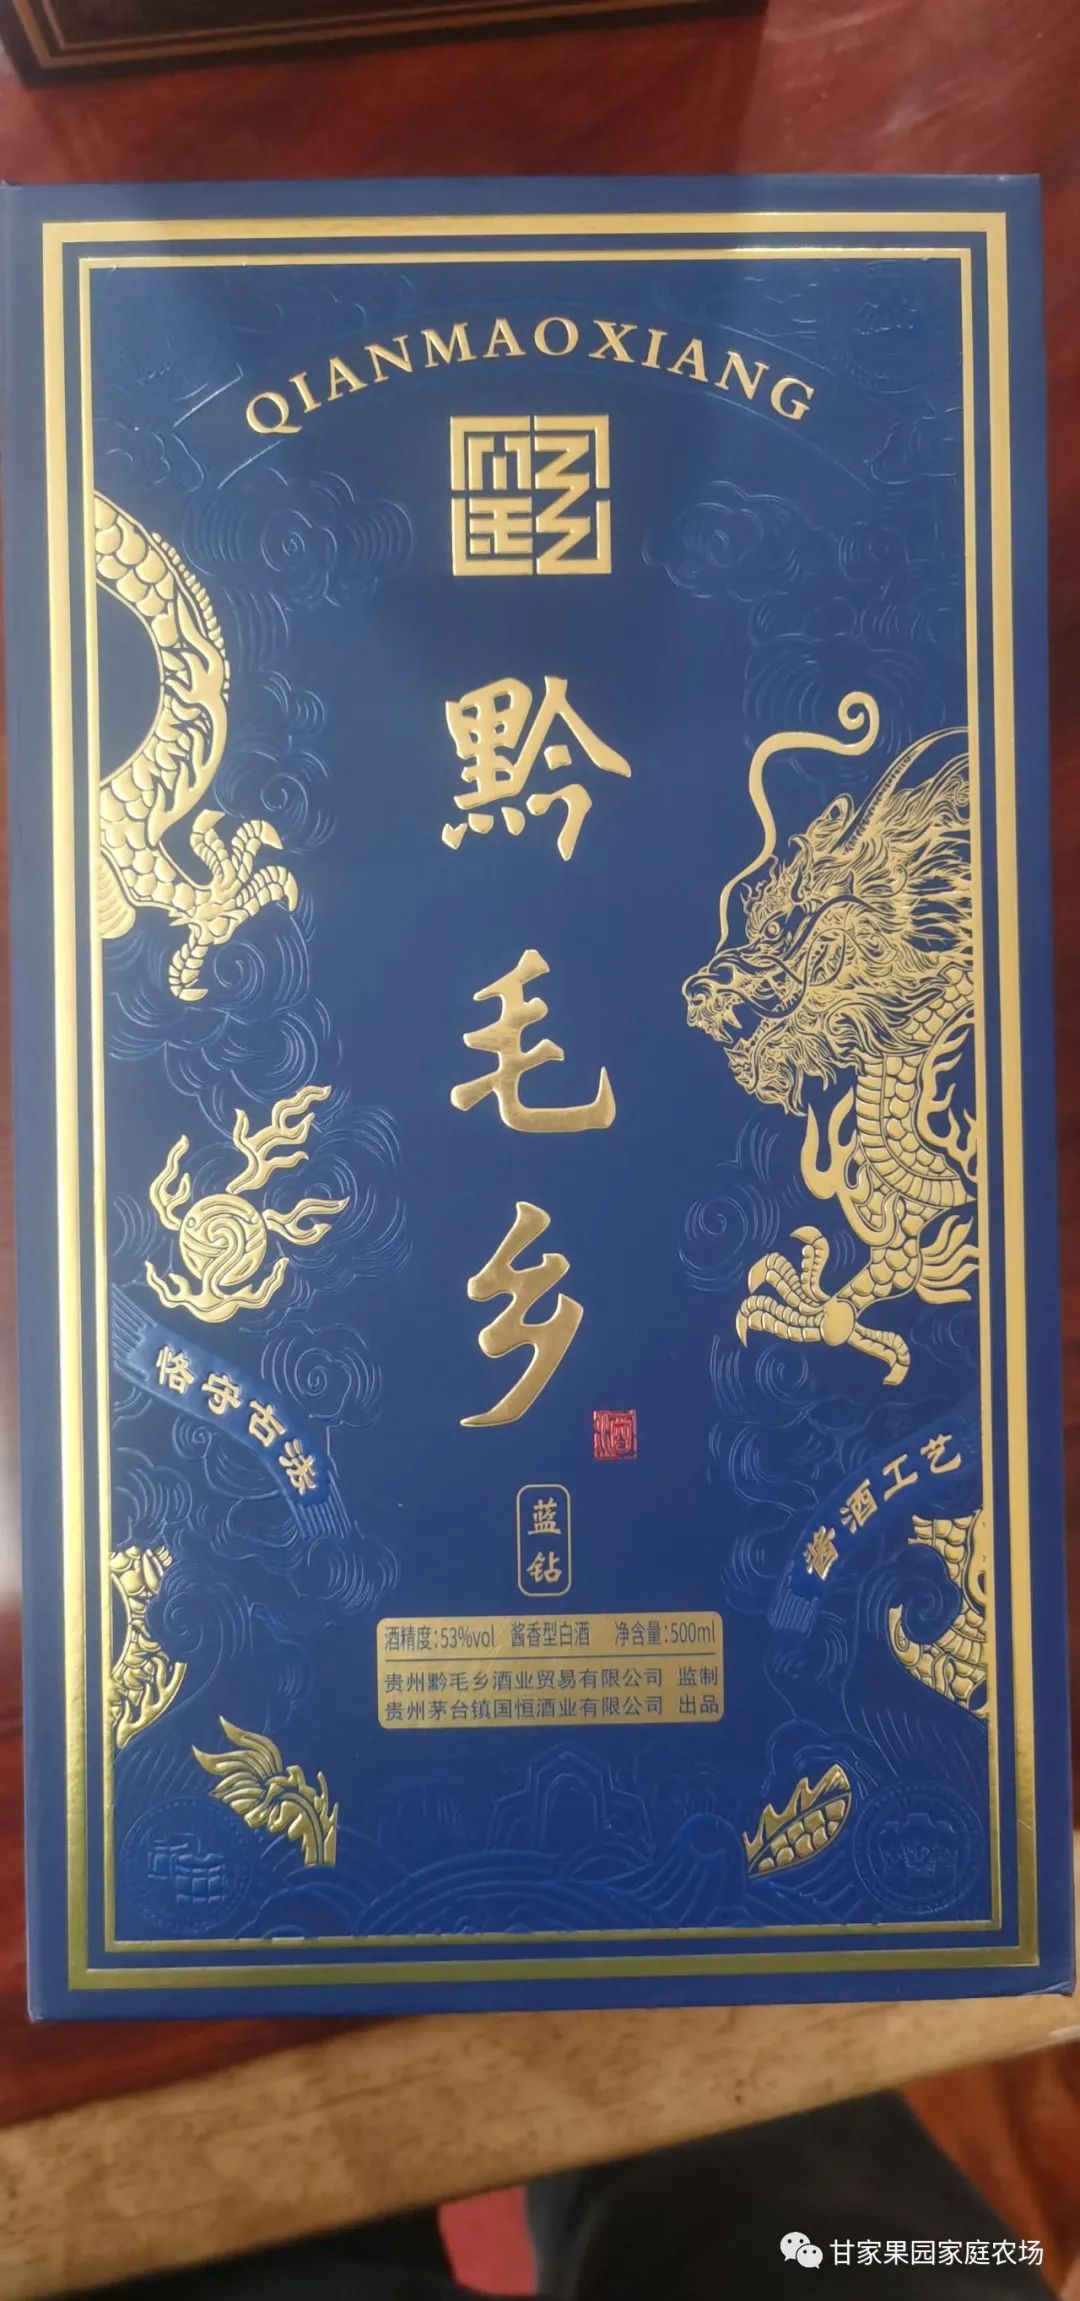 QIANMAOXIANG
黔毛乡
酒
恪守古法
酱酒工艺
蓝钻
酒精度:53%vol 酱香型白酒 净含量:500ml
贵州黔毛乡酒业贸易有限公司 监制
贵州茅台镇国恒酒业有限公司 出品
甘家果园家庭农场